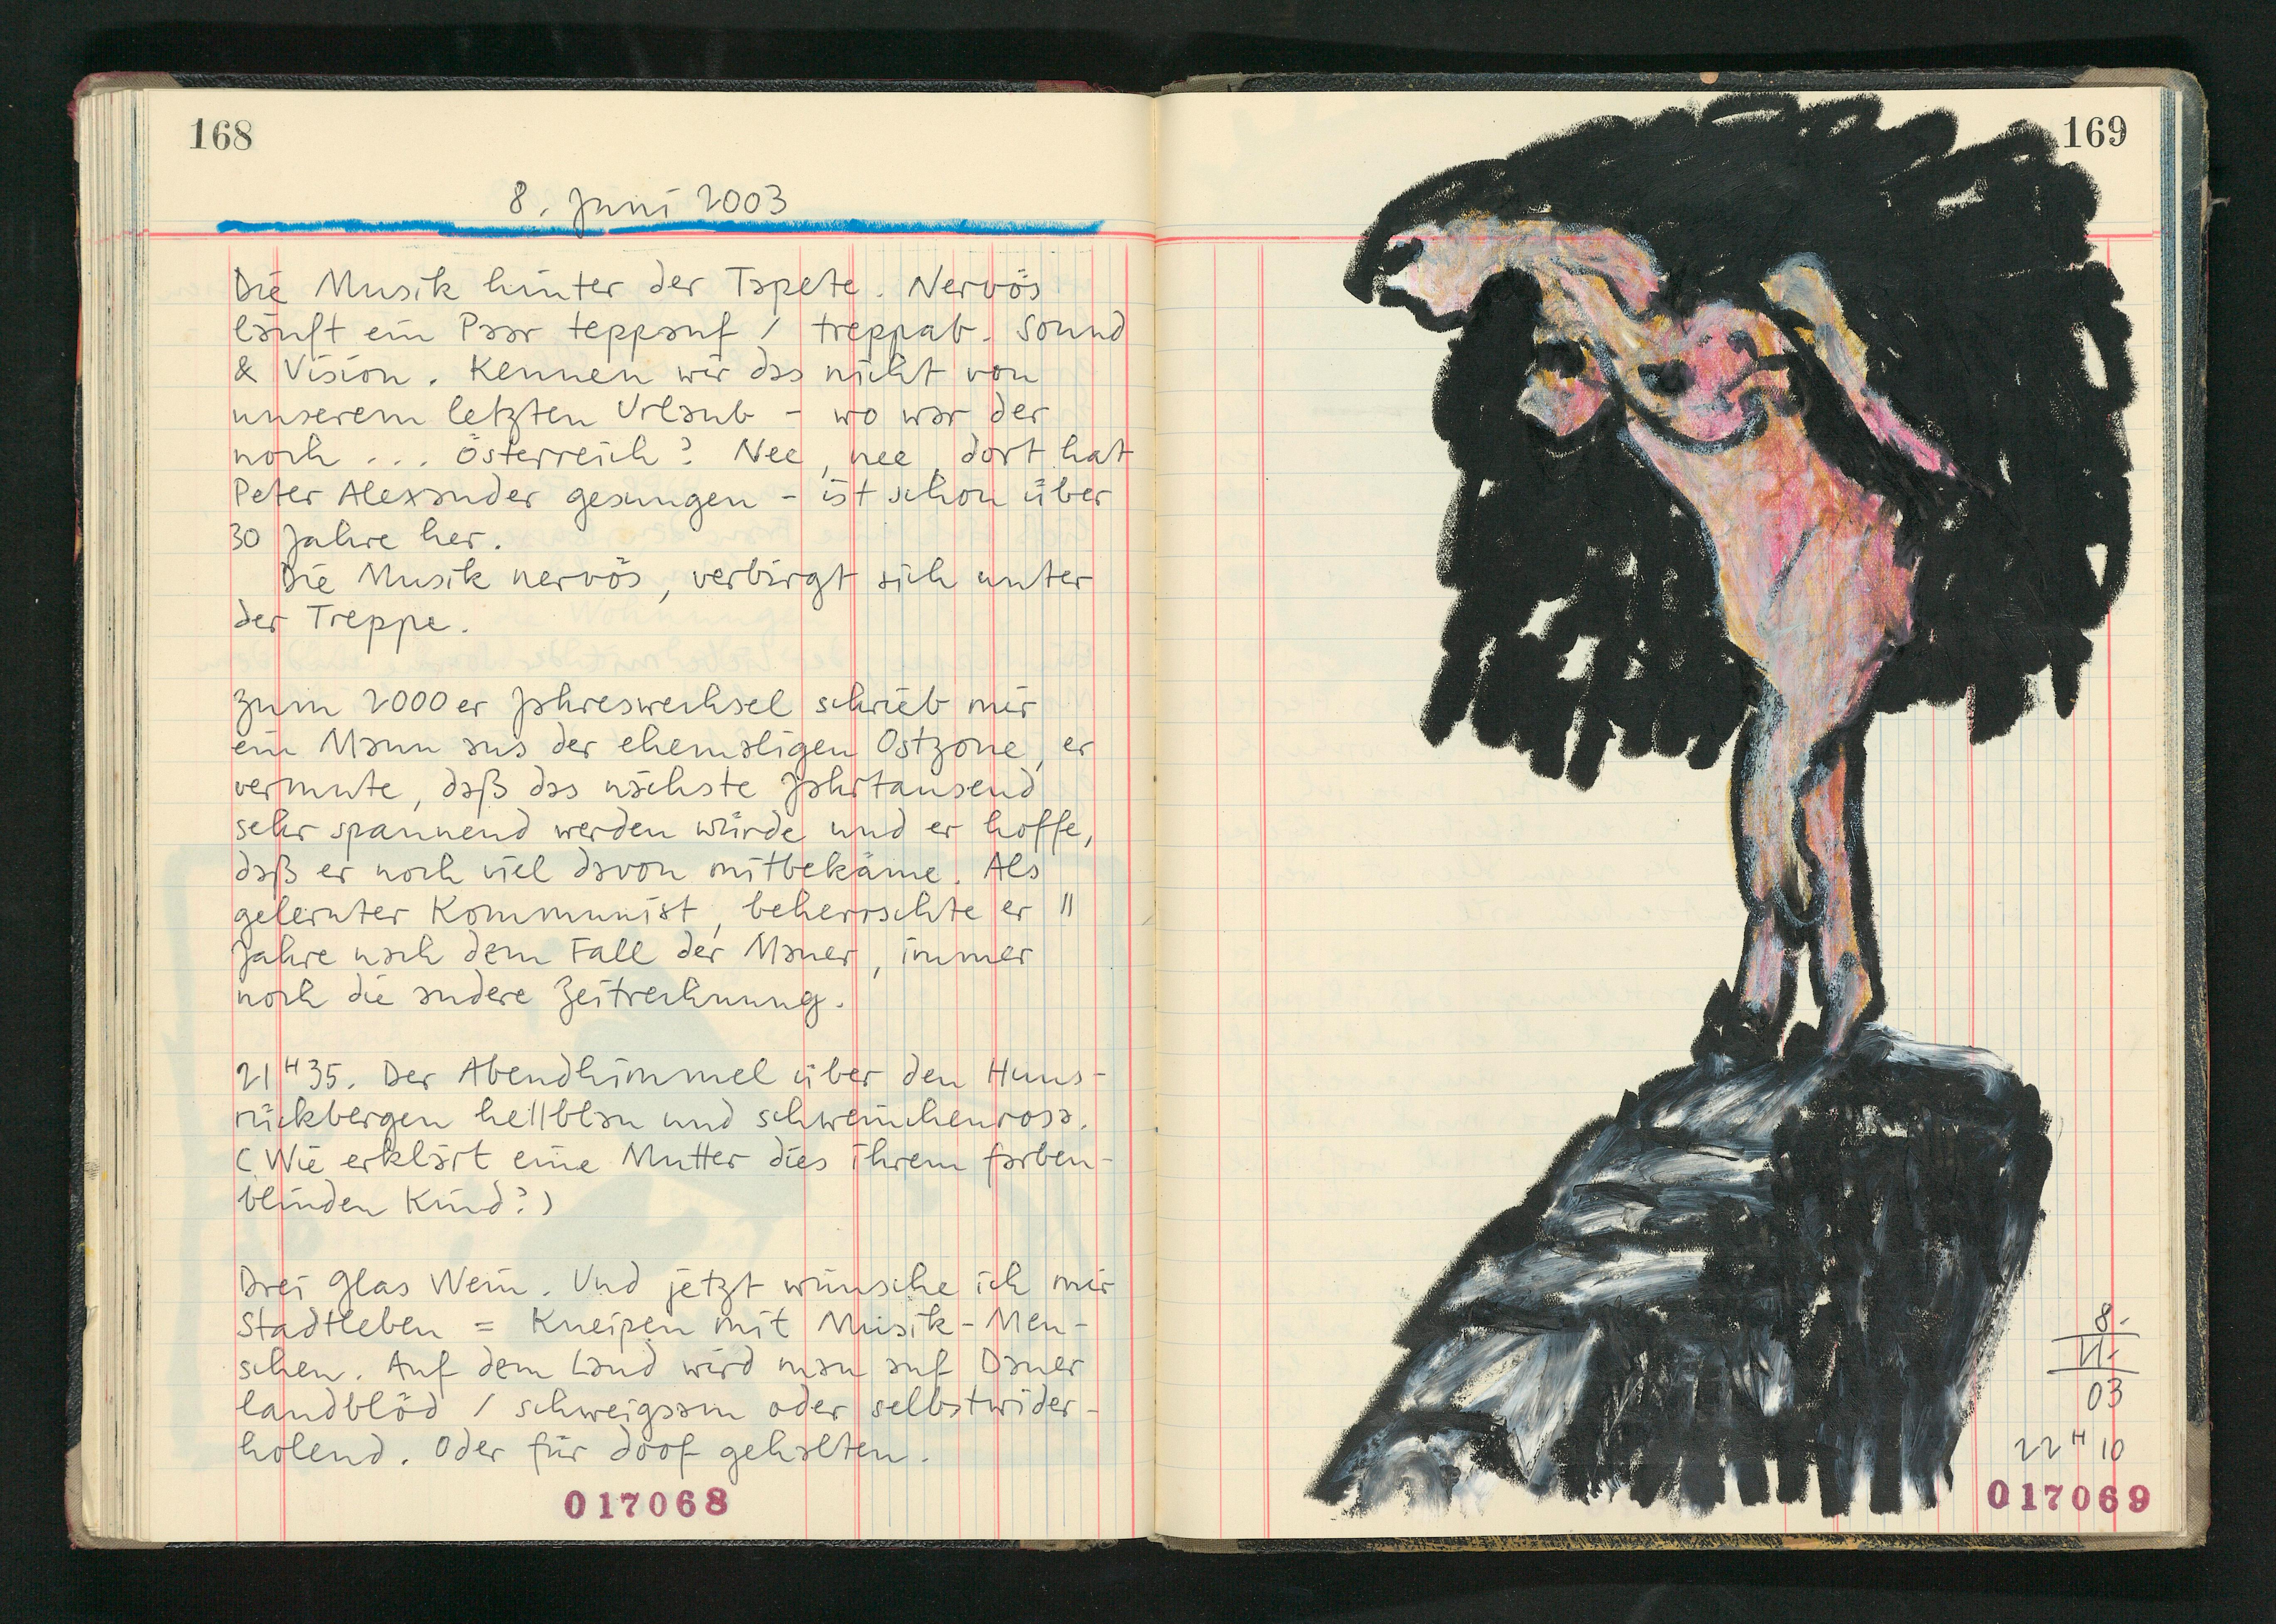 168
8. Juni 2003
Die Musik hinter der Tapete. Nervös
läuft ein Paar teppauf / treppab. Sound
& Vision. Kennen wir das nicht von
unserem letzten Urlaub - wo war der
noch ... Österreich? Nee, nee, dort hat
Peter Alexander gesungen - ist schon über
30 Jahre her.
Die Musik nervös, verbirgt sich unter
der Treppe.
Zum 2000er Jahreswechsel schrieb mir
ein Mann aus der ehemaligen Ostzone, er
vermute, daß das nächste Jahrtausend
sehr spannend werden würde und er hoffe,
daß er noch viel davon mitbekäme. Als
gelernter Kommunist, beherrschte er 11
Jahre nach dem Fall der Mauer, immer
noch die andere Zeitrechnung.
21H35. Der Abendhimmel über den Huns-
rückbergen hellblau und schweinchenrosa.
(Wie erklärt eine Mutter dies ihrem farben-
blinden Kind?)
Drei Glas Wein. Und jetzt wünsche ich mir
Stadtleben = Kneipen mit Musik-Men-
schen. Auf dem Land wird man auf Dauer
landblöd / schweigsam oder selbstwider-
holend. Oder für doof gehalten.
017068
169
8.
VI.
03
22H10
017069